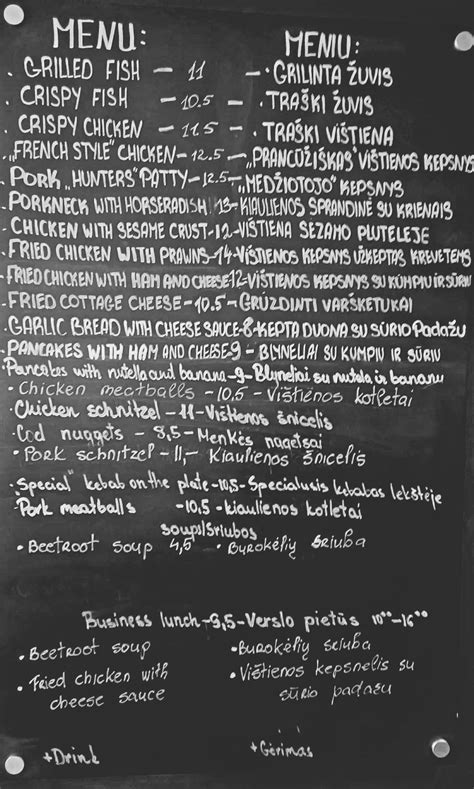 MENU: MENIU:
• GRILLED FISH – 11 – • GRILINTA ŽUVIS
• CRISPY FISH – 10.5 – • TRAŠKI ŽUVIS
• CRISPY CHICKEN – 11.5 – • TRAŠKI VIŠTIENA
• „FRENCH STYLE" CHICKEN – 12.5 – „PRANCŪZIŠKAS" VIŠTIENOS KEPSNYS
• PORK „HUNTERS" PATTY – 12.5 – „MEDŽIOTOJO" KEPSNYS
• PORKNECK WITH HORSERADISH 13 – KIAULIENOS SPRANDINĖ SU KRIENAIS
• CHICKEN WITH SESAME CRUST – 12 – VIŠTIENA SEZAMO PLUTELĖJE
• FRIED CHICKEN WITH PRAWNS – 14 – VIŠTIENOS KEPSNYS UŽKEPTAS KREVETĖMS
• FRIED CHICKEN WITH HAM AND CHEESE 12 – VIŠTIENOS KEPSNYS SU KUMPIU IR SŪRIU
• FRIED COTTAGE CHEESE – 10.5 – GRŪZDINTI VARŠKĖTUKAI
• GARLIC BREAD WITH CHEESE SAUCE – 8 – KEPTA DUONA SU SŪRIO PADAŽU
• PANCAKES WITH HAM AND CHEESE – 9 – BLYNELIAI SU KUMPIU IR SŪRIU
• Pancakes with nutella and banana – 9 – Blyneliai su nutela ir bananu
• Chicken meatballs – 10,5 – Vištienos kotletai
• Chicken schnitzel – 11 – Vištienos šnicelis
• Cod nuggets – 8,5 – Menkės nagetsai
• Pork schnitzel – 11,– Kiaulienos šnicelis
• „Special" kebab on the plate – 10,5 – Specialusis kebabas lėkštėje
• Pork meatballs – 10,5 – kiaulienos kotletai
soups/Sriubos
• Beetroot soup 4,5 • Burokėlių sriuba
Business lunch – 9,5 – Verslo pietūs 10⁰⁰–16⁰⁰
• Beetroot soup • Burokėlių sriuba
• Fried chicken with • Vištienos kepsnelis su
cheese sauce sūrio padažu
+Drink +Gėrimas